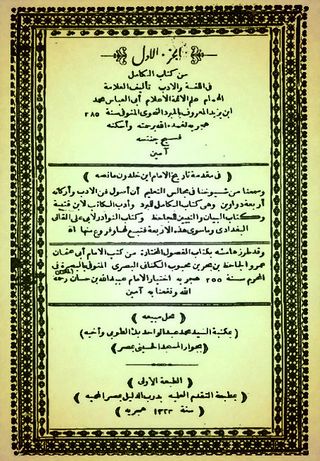 الجزء الأول
من كتاب الكامل
فى اللغة والادب تأليف العلامة
الهمام علم الائمة الاعلام أبى العباس محمد
ابن يزيد المعروف بالمبرد النحوى المتوفى سنة ٢٨٥
هجريه تغمده الله برحمته وأسكنه
فسيح جنته
آمين
( فى مقدمة تاريخ الامام ابن خلدون مانصه )
وسمعنا من شيوخنا فى مجالس التعليم أن أصول فن الادب وأركانه
أربعة دواوين وهى كتاب الكامل للمبرد وأدب الكاتب لابن قتيبة
وكتاب البيان والتبيين للجاحظ وكتاب النوادر لأبى على القالى
البغدادى وماسوى هذه الاربعة فتبع لها وفروع منها اه
وقد طرز هامشه بكتاب الفصول المختارة من كتب الامام أبى عثمان
عمرو الجاحظ بن بحر بن محبوب الكنانى البصرى المتوفى بالبصرة فى
المحرم سنة ٢٥٥ هجريه اختيار الامام عبيد الله بن حسان رحمه
الله ونفعنا به آمين
محل مبيعه
( بمكتبة السيد محمد عبد الواحد بك الطوبى وأخيه )
( بجوار المسجد الحسينى بمصر )
( الطبعة الأولى )
( بمطبعة التقدم العلميه بدرب الدليل بمصر المحميه )
( سنة ١٣٢٣ هجريه )